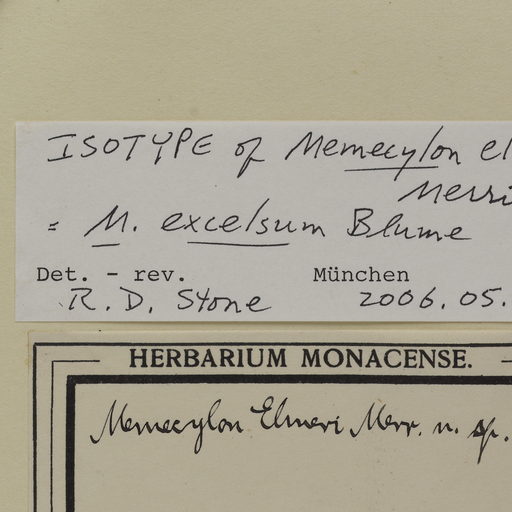 ISOTYPE of Memecylon el
Merri
= M. excelsum Blume
Det. - rev. München
R. D. Stone 2006.05.
HERBARIUM MONACENSE.
Memecylon Elmeri Merr. n. sp.